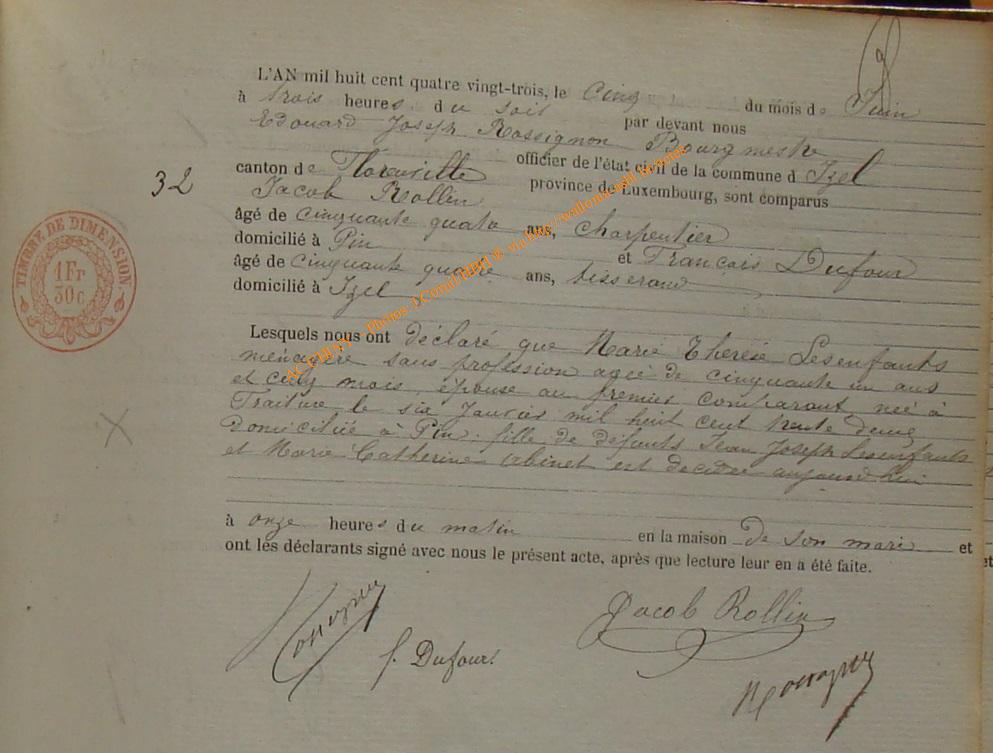 L'AN mil huit cent quatre vingt-trois, le Cinq du mois de Juin
à trois heures du soir par devant nous
Edouard Joseph Rossignon Bourgmestre
officier de l'état civil de la commune d Izel
32
canton de Florenville province de Luxembourg, sont comparus
Jacob Rollin
âgé de cinquante quatre ans, charpentier
domicilié à Pin et François Dufour
âgé de cinquante quatre ans, tisserand
domicilié à Izel
TIMBRE DE DIMENSION
1 Fr
30 c
Lesquels nous ont déclaré que Marie Therèse Lesenfants
ménagère sans profession agée de cinquante un ans
et cinq mois, épouse au premier comparant, née à
le six Janvier mil huit cent trente deux
Domiciliée à Pin, fille de défunts Jean Joseph Lesenfants
et Marie Catherine est decédée aujourd'hui
à onze heures du matin en la maison de son mari et
ont les déclarants signé avec nous le présent acte, après que lecture leur en a été faite.
Jacob Rollin
f. Dufour